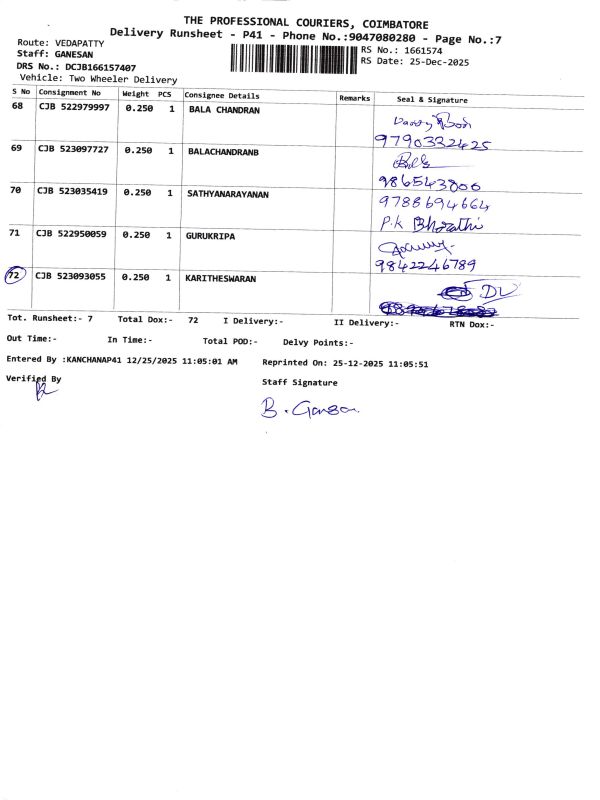 THE PROFESSIONAL COURIERS, COIMBATORE
Delivery Runsheet - P41 - Phone No.:9047080280 - Page No.:7
Route: VEDAPATTY
RS No.: 1661574
Staff: GANESAN
RS Date: 25-Dec-2025
DRS No.: DCJB166157407
Vehicle: Two Wheeler Delivery
S No Consignment No Weight PCS Consignee Details Remarks Seal & Signature
68 CJB 522979997 0.250 1 BALA CHANDRAN
9790332425
69 CJB 523097727 0.250 1 BALACHANDRANB
986543806
70 CJB 523035419 0.250 1 SATHYANARAYANAN 9788694664
P.K Bharathi
71 CJB 522950059 0.250 1 GURUKRIPA
9842246789
72 CJB 523093055 0.250 1 KARITHESWARAN
DL
Tot. Runsheet:- 7 Total Dox:- 72 I Delivery:- II Delivery:- RTN Dox:-
Out Time:- In Time:- Total POD:- Delvy Points:-
Entered By :KANCHANAP41 12/25/2025 11:05:01 AM Reprinted On: 25-12-2025 11:05:51
Verified By Staff Signature
B. Ganesan